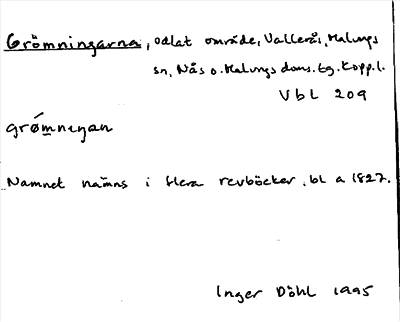 Grömningarna, odlat område, Vallerås, Malungs
sn, Nås o. Malungs doms. tg. Kopp. l.
VbL 209
grömnegan
Namnet nämns i flera revböcker, bl a 1827.
Inger Döhl 1995